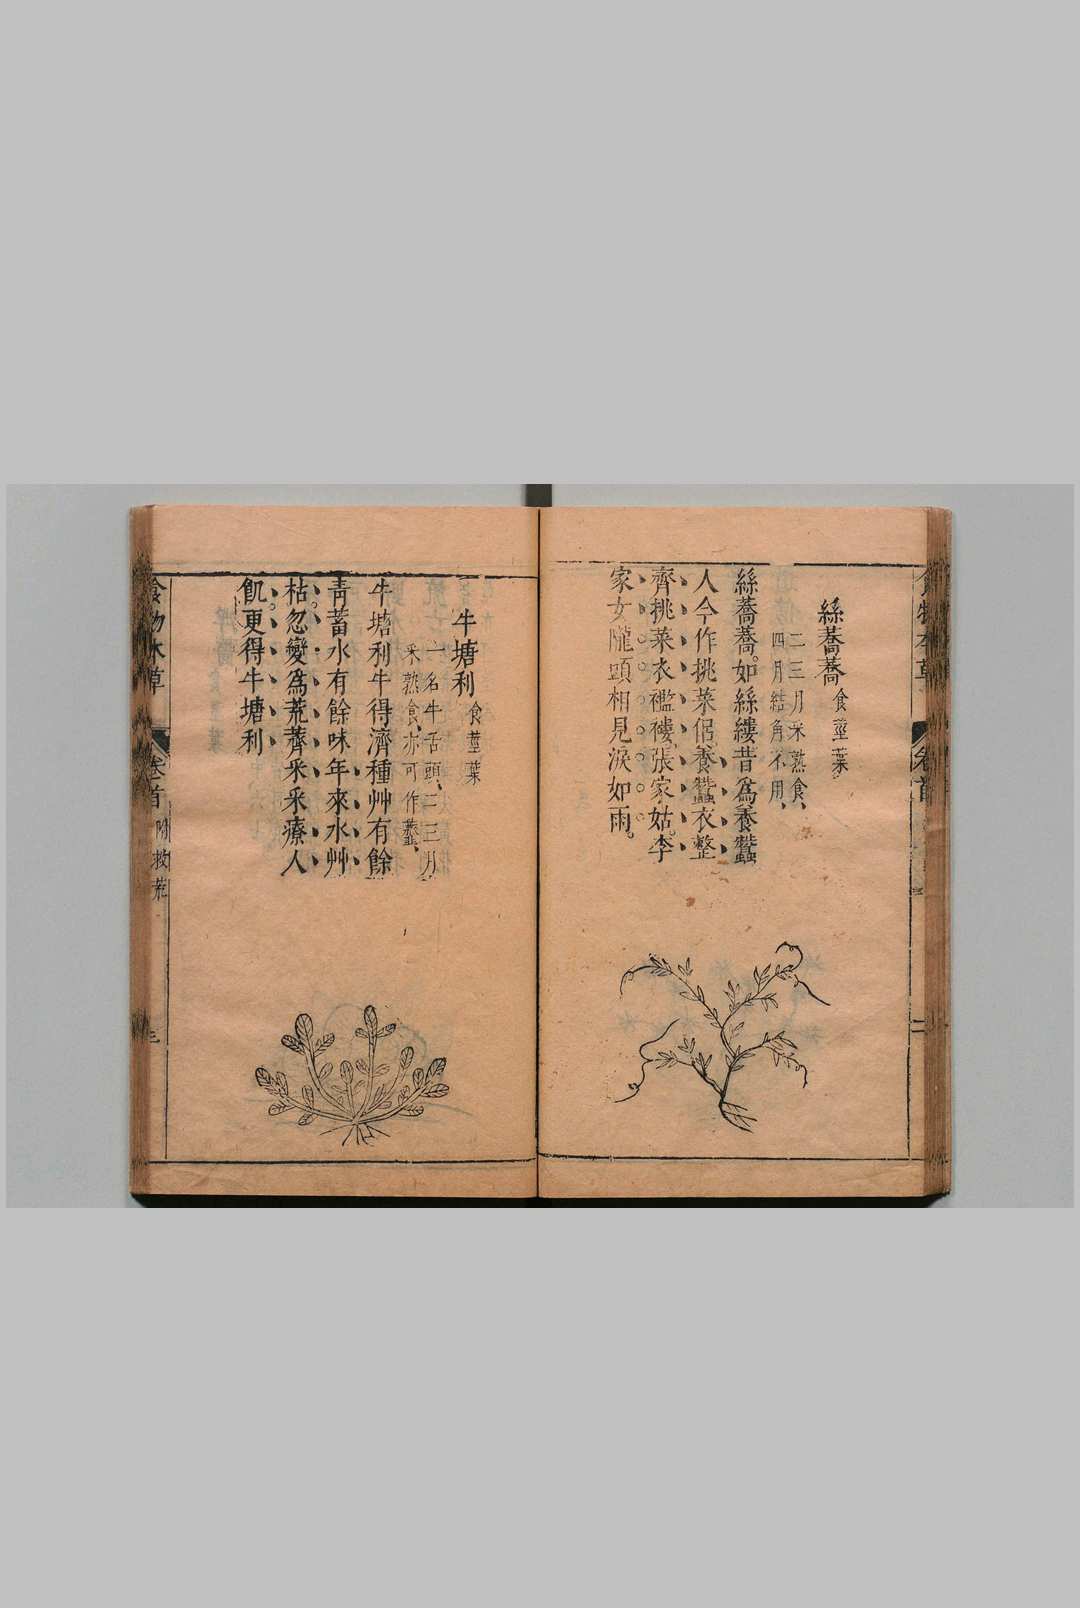 絲蕎蕎食莖葉
二三月采熟食、
四月結角不用、
絲蕎蕎。如絲縷昔爲養蠶
人今作挑菜侶。養蠶衣整
齊挑菜衣襤褸。張家姑。李
家女隴頭相見淚如雨。
牛塘利食莖葉
一名牛舌頭、二三月
采熟食、亦可作虀、
牛塘利牛得濟種艸有餘
靑蓄水有餘味年來水艸
枯忽變爲荒薺采采療人
飢更得牛塘利
食物本草
卷首
附救荒
三